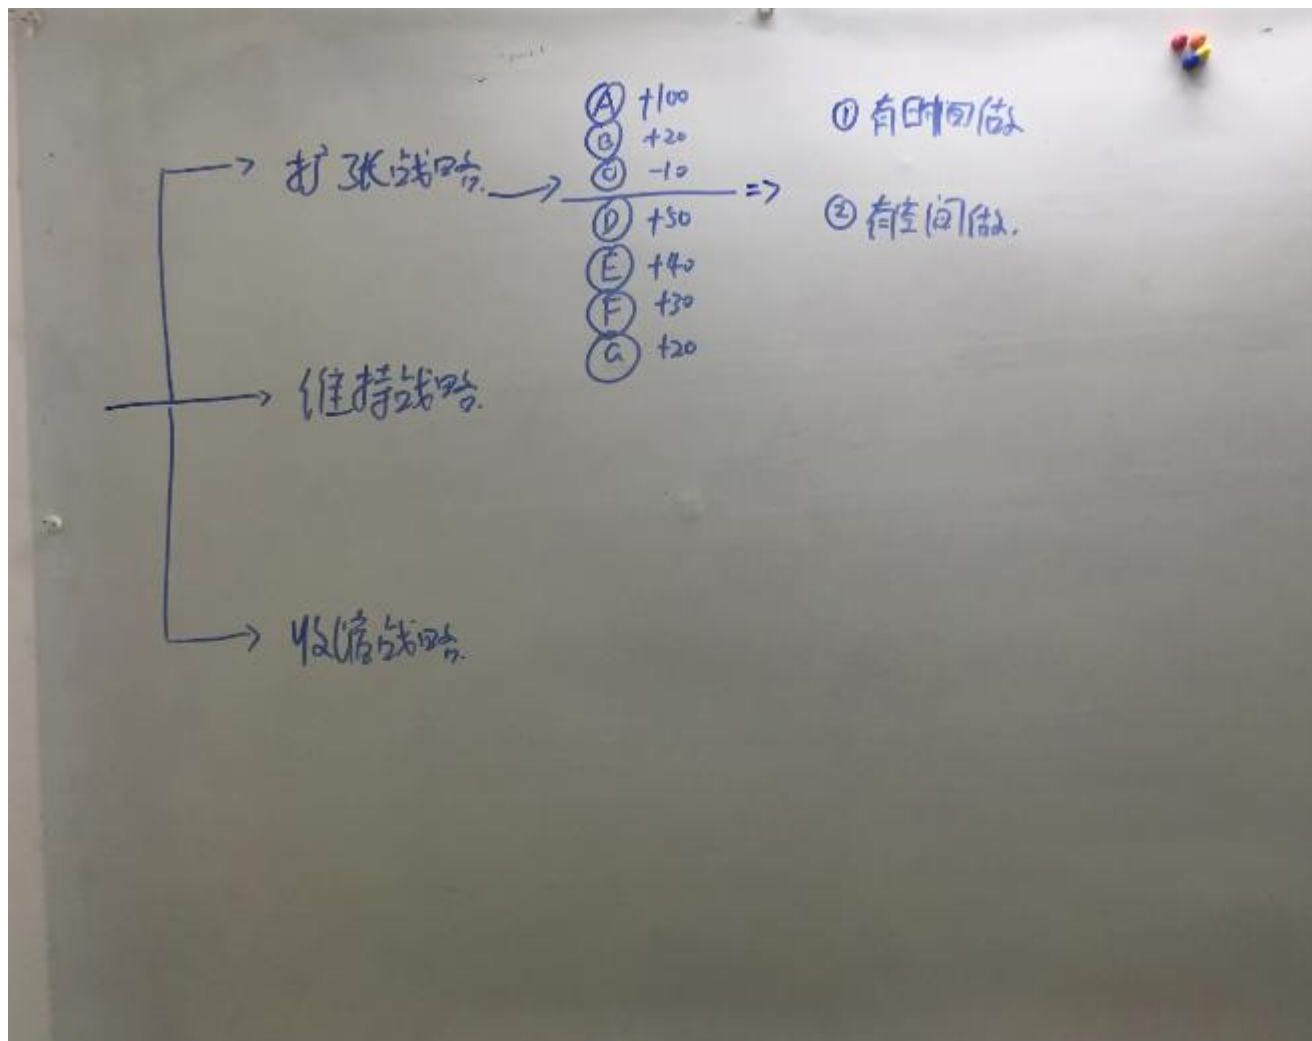 扩张战略.
Ⓐ +100
Ⓑ +20
Ⓒ -10
Ⓓ +50
Ⓔ +40
Ⓕ +30
Ⓖ +20
① 有时间做
② 有空间做.
维持战略.
收缩战略.